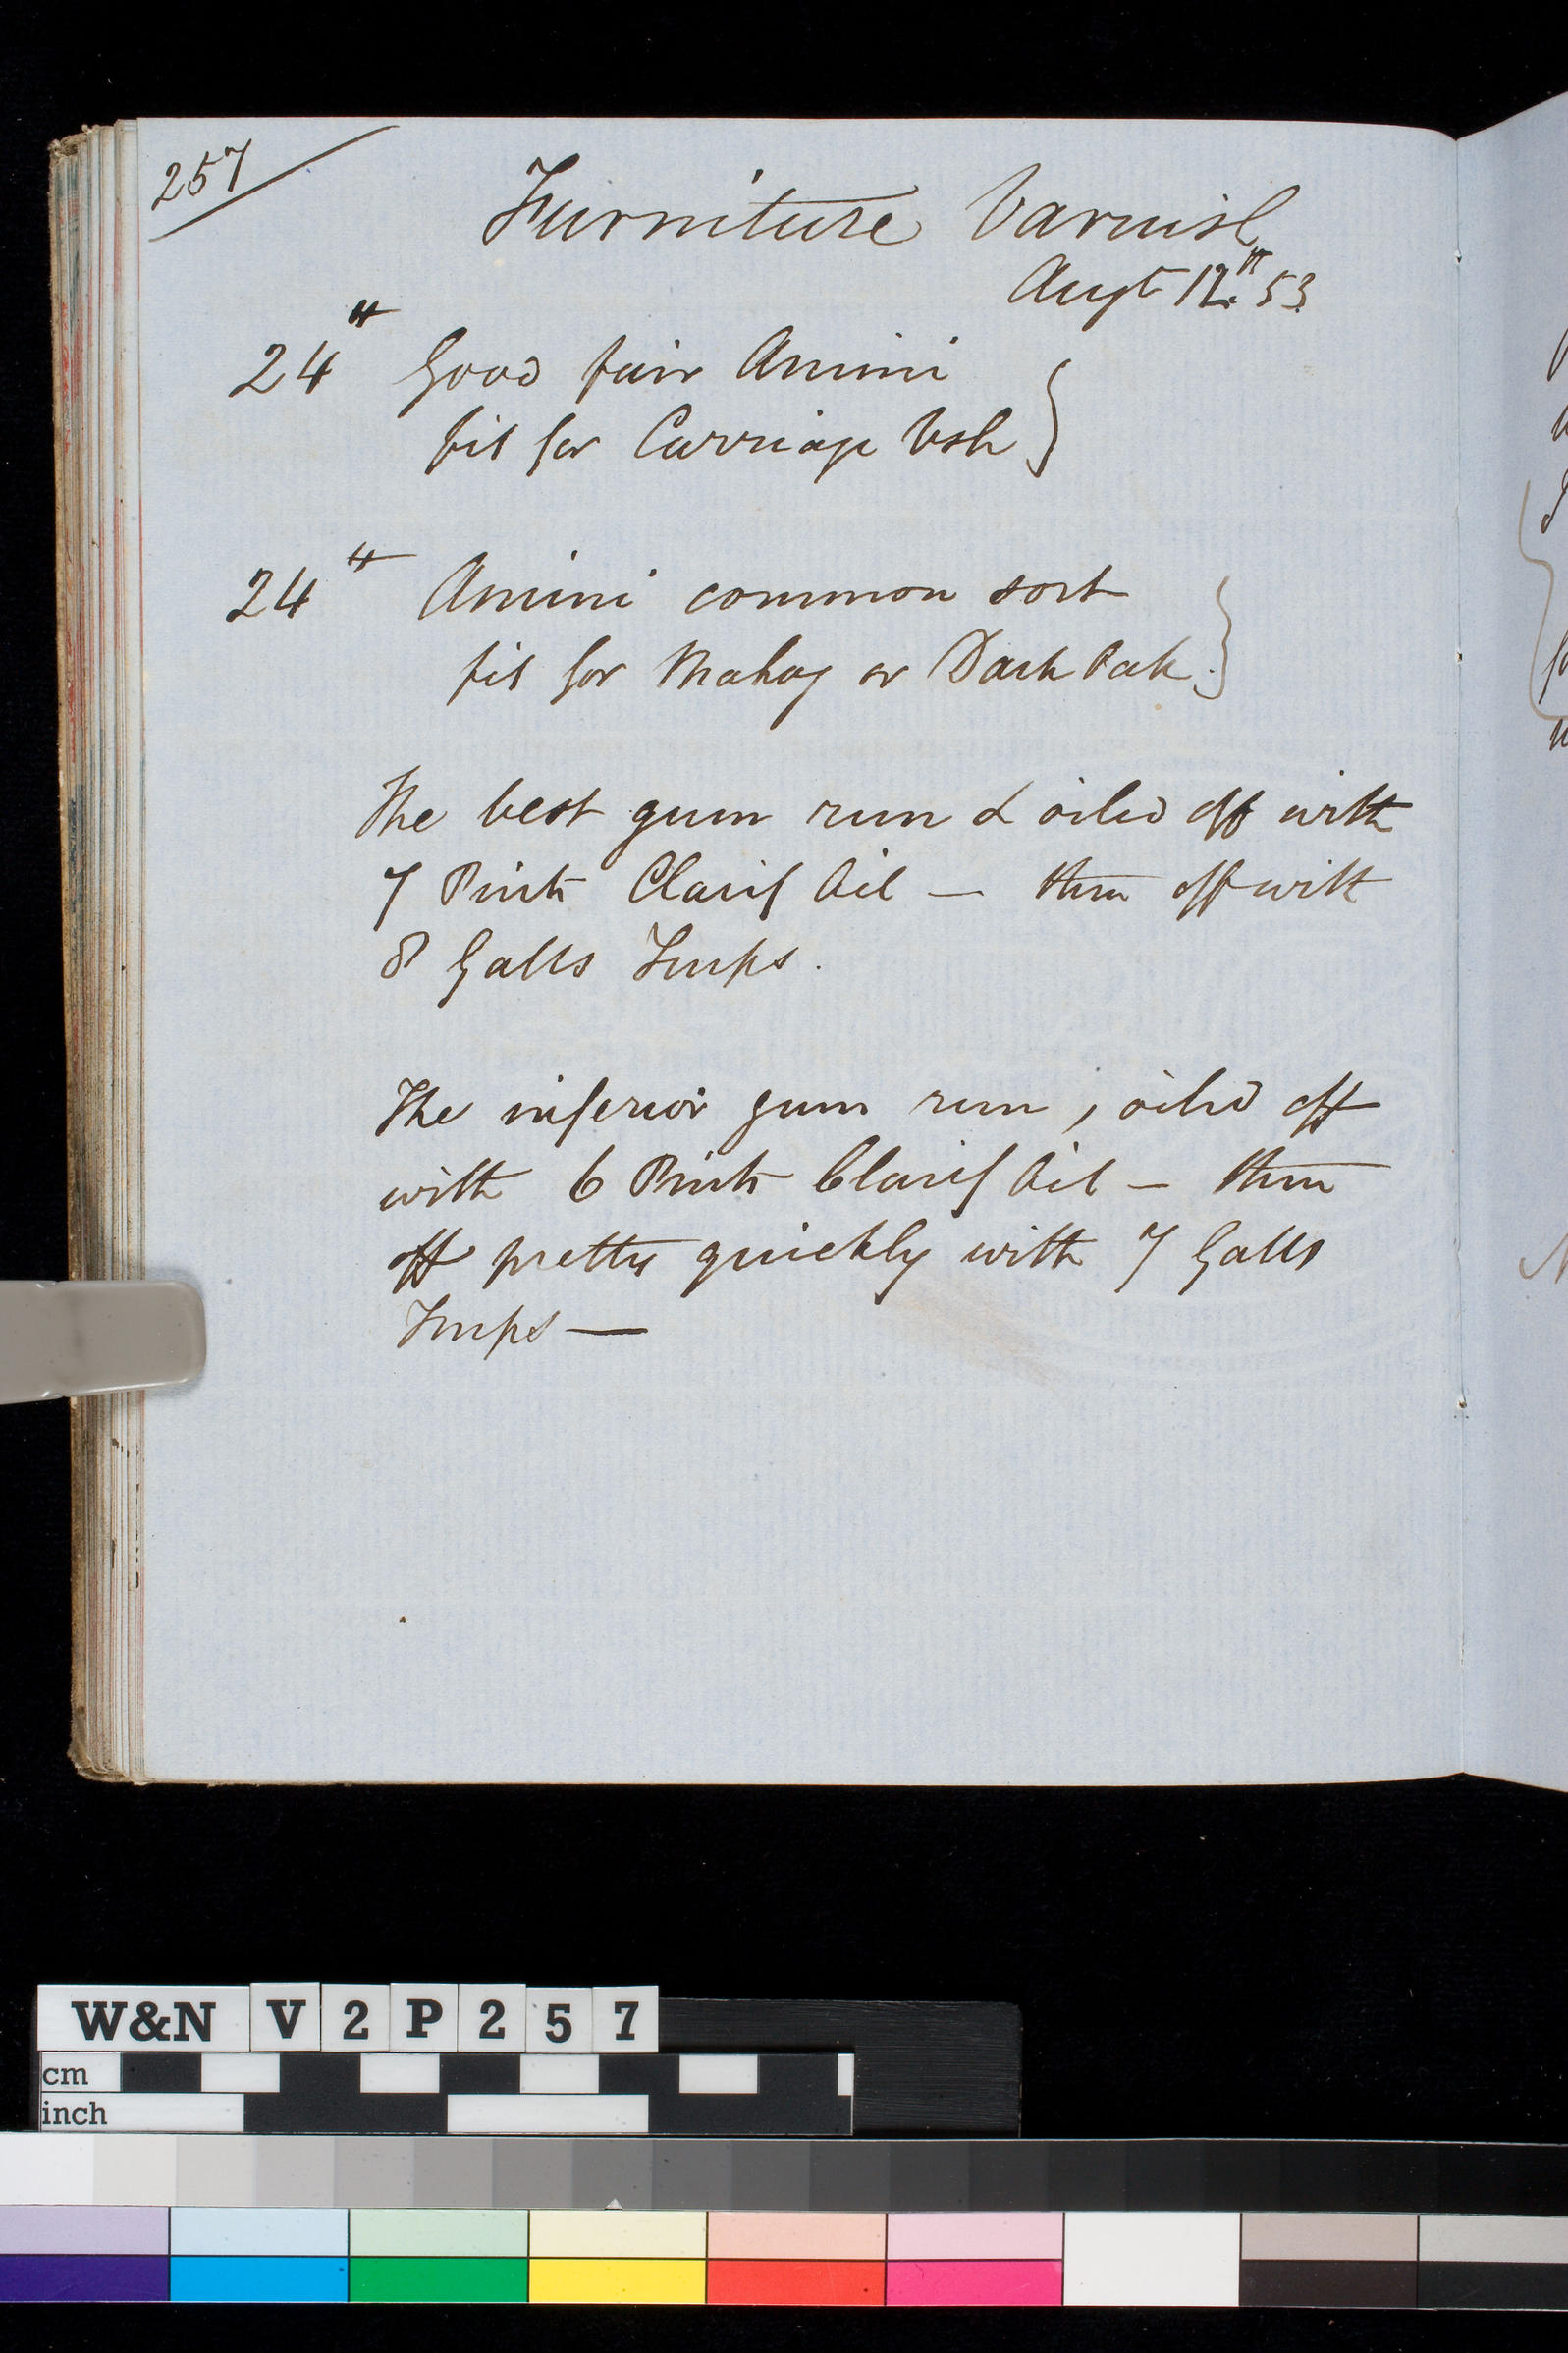 257
Furniture Varnish
Augt 12th 53
24 lb Good fair Animi
fit for Carriage Vsh
24 lb Animi common sort
fit for Mahog or Dark Oak.
The best gum run & oiled off with
7 Pints Clarif Oil — then off with
8 Galls Turps.
The inferior gum run, oiled off
with 6 Pints Clarif Oil — then
off pretty quickly with 7 Galls
Turps —
W&N V2P257
cm
inch